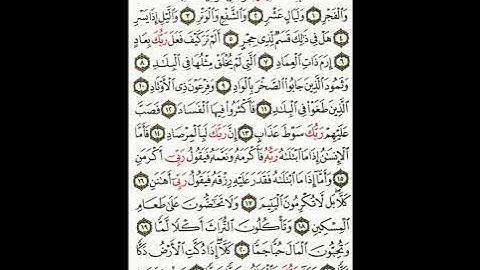 وَالْفَجْرِ ١ وَلَيَالٍ عَشْرٍ ٢ وَالشَّفْعِ وَالْوَتْرِ ٣ وَاللَّيْلِ إِذَا يَسْرِ
٤ هَلْ فِي ذَٰلِكَ قَسَمٌ لِّذِي حِجْرٍ ٥ أَلَمْ تَرَ كَيْفَ فَعَلَ رَبُّكَ بِعَادٍ
٦ إِرَمَ ذَاتِ الْعِمَادِ ٧ الَّتِي لَمْ يُخْلَقْ مِثْلُهَا فِي الْبِلَادِ ٨
وَثَمُودَ الَّذِينَ جَابُوا الصَّخْرَ بِالْوَادِ ٩ وَفِرْعَوْنَ ذِي الْأَوْتَادِ ١٠
الَّذِينَ طَغَوْا فِي الْبِلَادِ ١١ فَأَكْثَرُوا فِيهَا الْفَسَادَ ١٢ فَصَبَّ
عَلَيْهِمْ رَبُّكَ سَوْطَ عَذَابٍ ١٣ إِنَّ رَبَّكَ لَبِالْمِرْصَادِ ١٤ فَأَمَّا
الْإِنسَانُ إِذَا مَا ابْتَلَاهُ رَبُّهُ فَأَكْرَمَهُ وَنَعَّمَهُ فَيَقُولُ رَبِّي أَكْرَمَنِ
١٥ وَأَمَّا إِذَا مَا ابْتَلَاهُ فَقَدَرَ عَلَيْهِ رِزْقَهُ فَيَقُولُ رَبِّي أَهَانَنِ ١٦
كَلَّا بَل لَّا تُكْرِمُونَ الْيَتِيمَ ١٧ وَلَا تَحَاضُّونَ عَلَىٰ طَعَامِ
الْمِسْكِينِ ١٨ وَتَأْكُلُونَ التُّرَاثَ أَكْلًا لَّمًّا ١٩
وَتُحِبُّونَ الْمَالَ حُبًّا جَمًّا ٢٠ كَلَّا إِذَا دُكَّتِ الْأَرْضُ دَكًّا